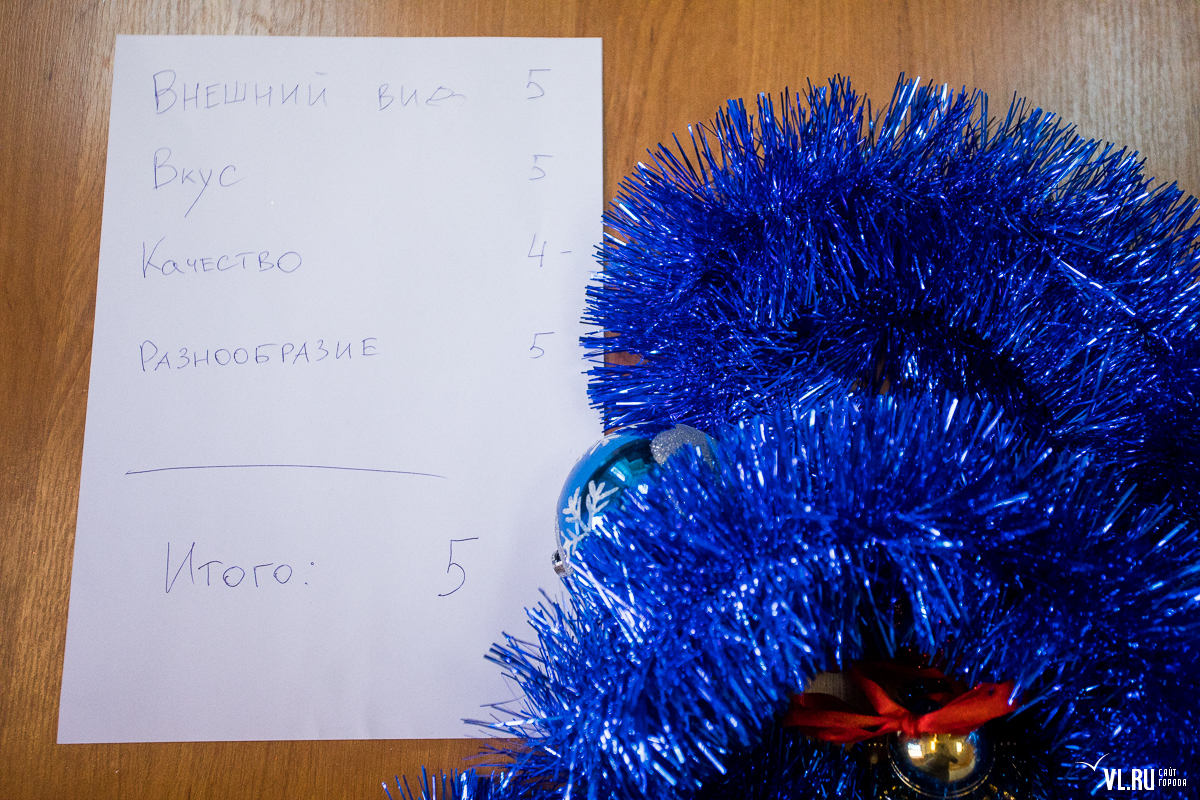 Внешний вид 5
Вкус 5
Качество 4-
Разнообразие 5
Итого: 5
VL.RU САЙТ ГОРОДА